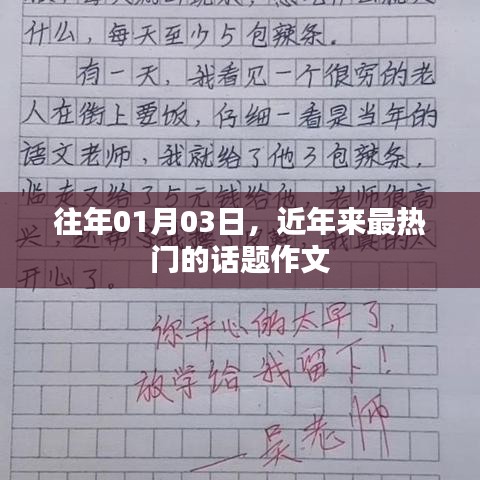 什么，每天至少5包辣条。
有一天，我看见一个很穷的老
人在街上要饭，仔细一看是当年的
语文老师，我就给了他3包辣条，
临走了给了5元钱给他，老师很高
往年01月03日，近年来最热
门的话题作文
开心了。
你开心的太早了，
放学给我留下！
——吴老师